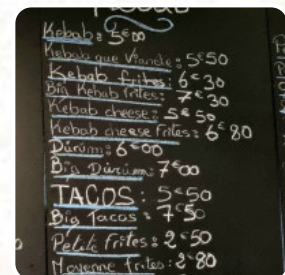 Kebab : 5€00
Kebab que Viande : 5€50
Kebab frites : 6€30
Big Kebab frites : 7€30
Kebab cheese : 5€50
Kebab cheese frites : 6€80
Dürüm : 6€00
Big Dürüm : 7€00
TACOS : 5€50
Big Tacos : 7€50
Petite frites : 2€50
Moyenne frites : 2€80